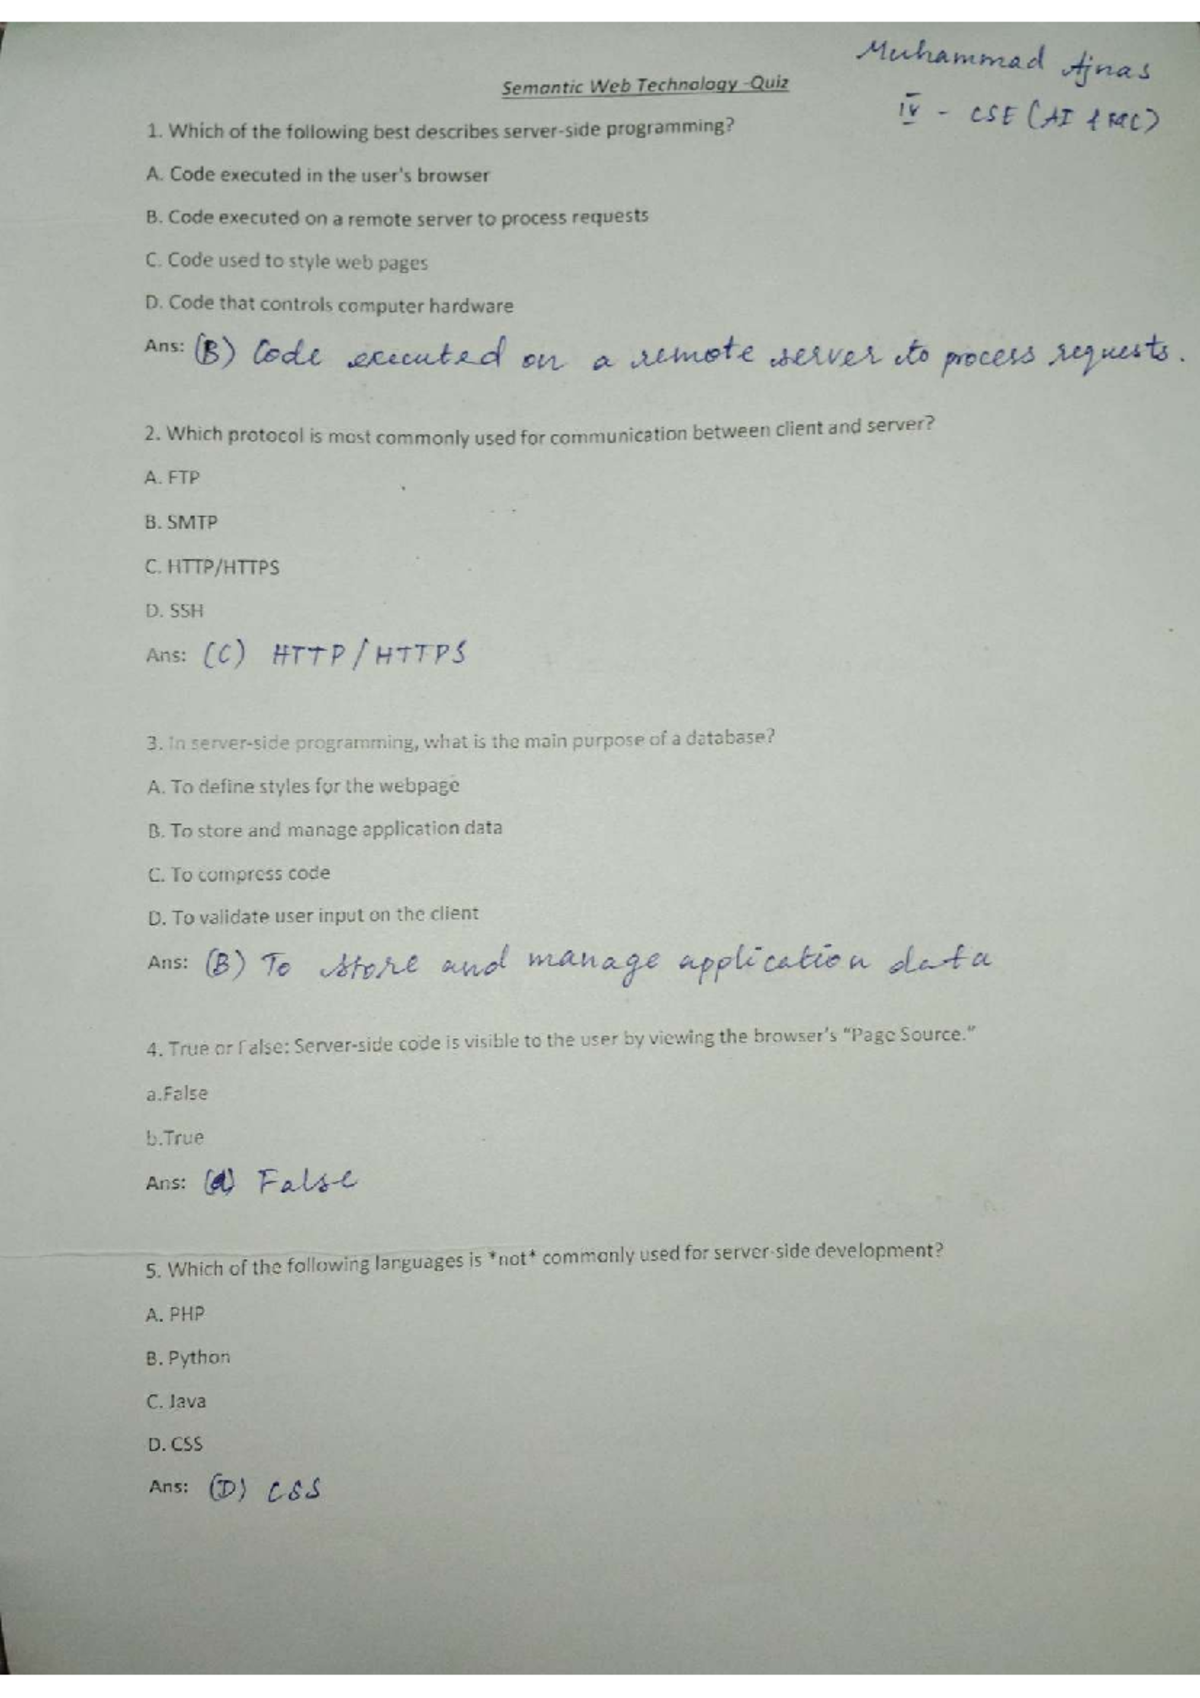 Muhammad Ajnas
Semantic Web Technology -Quiz
IV - CSE (AI &
1. Which of the following best describes server-side programming?
A. Code executed in the user's browser
B. Code executed on a remote server to process requests
C. Code used to style web pages
D. Code that controls computer hardware
Ans: (B) Code executed on a remote server to process requests.
2. Which protocol is most commonly used for communication between client and server?
A. FTP
B. SMTP
C. HTTP/HTTPS
D. SSH
Ans: (C) HTTP/HTTPS
3. In server-side programming, what is the main purpose of a database?
A. To define styles for the webpage
B. To store and manage application data
C. To compress code
D. To validate user input on the client
Ans: (B) To store and manage application data
4. True or False: Server-side code is visible to the user by viewing the browser's “Page Source.”
a.False
b.True
Ans: (a) False
5. Which of the following languages is *not* commonly used for server-side development?
A. PHP
B. Python
C. Java
D. CSS
Ans: (D) CSS